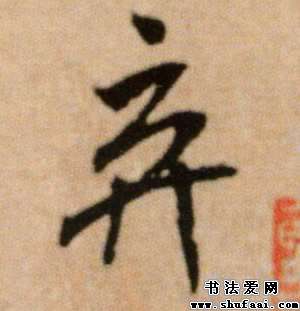 弃
书法爱网
www.shufaai.com